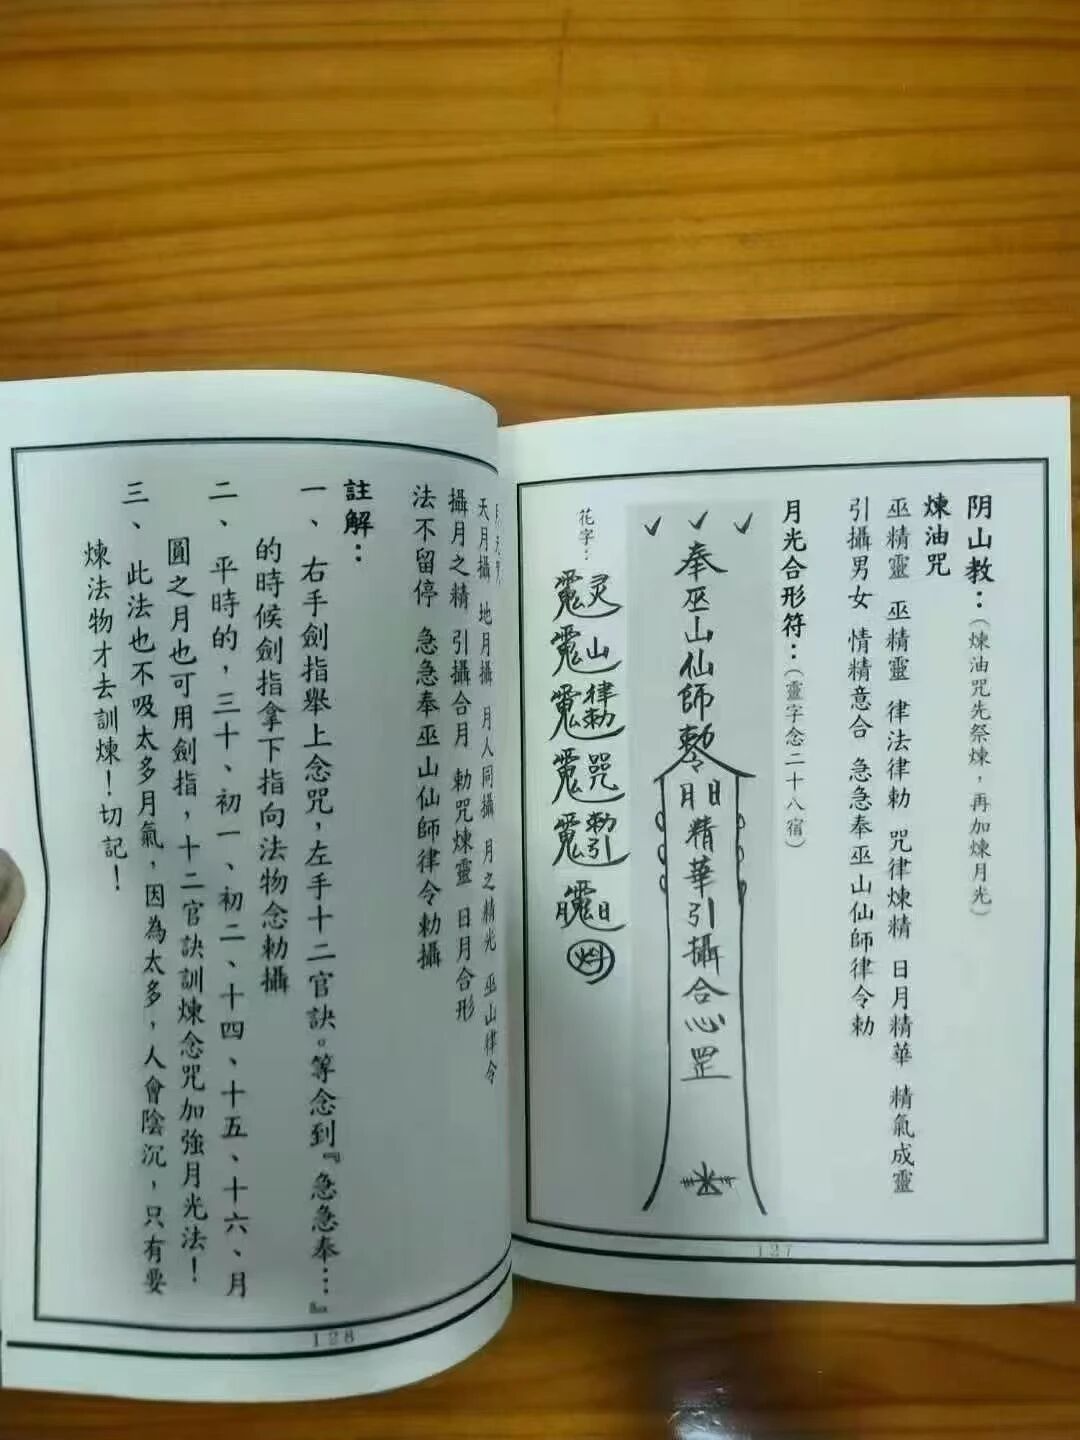 阴山教：（煉油咒先祭煉，再加煉月光）
煉油咒
巫精靈 巫精靈 律法律勅 咒律煉精 日月精華 精氣成靈
引攝男女 情精意合 急急奉巫山仙師律令勅
月光合形符：（靈字念二十八宿）
奉巫山仙師勅令
月日
精華引攝合心罡
花字：
灵
山
律勅
咒
勅引
月 日
127
天月攝 地月攝 月人同攝 月之精光 巫山律令
攝月之精 引攝合月 勅咒煉靈 日月合形
法不留停 急急奉巫山仙師律令勅攝
註解：
一、右手劍指舉上念咒，左手十二官訣。等念到『急急奉…』
的時候劍指拿下指向法物念勅攝
二、平時的，三十、初一、初二、十四、十五、十六、月
圓之月也可用劍指，十二官訣訓煉念咒加強月光法！
三、此法也不吸太多月氣，因為太多，人會陰沉，只有要
煉法物才去訓煉！切記！
128